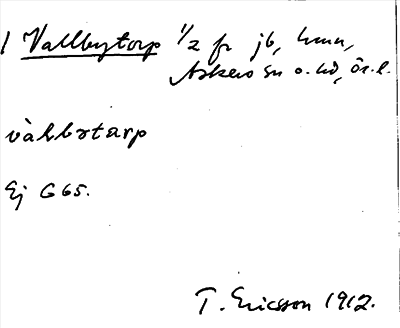 1 Vallbytorp 1/2 fr jb, hmn,
Askers sn o. hd, ör. l.
vàllbタtàrp
Ej G 65.
T. Ericsson 1912.